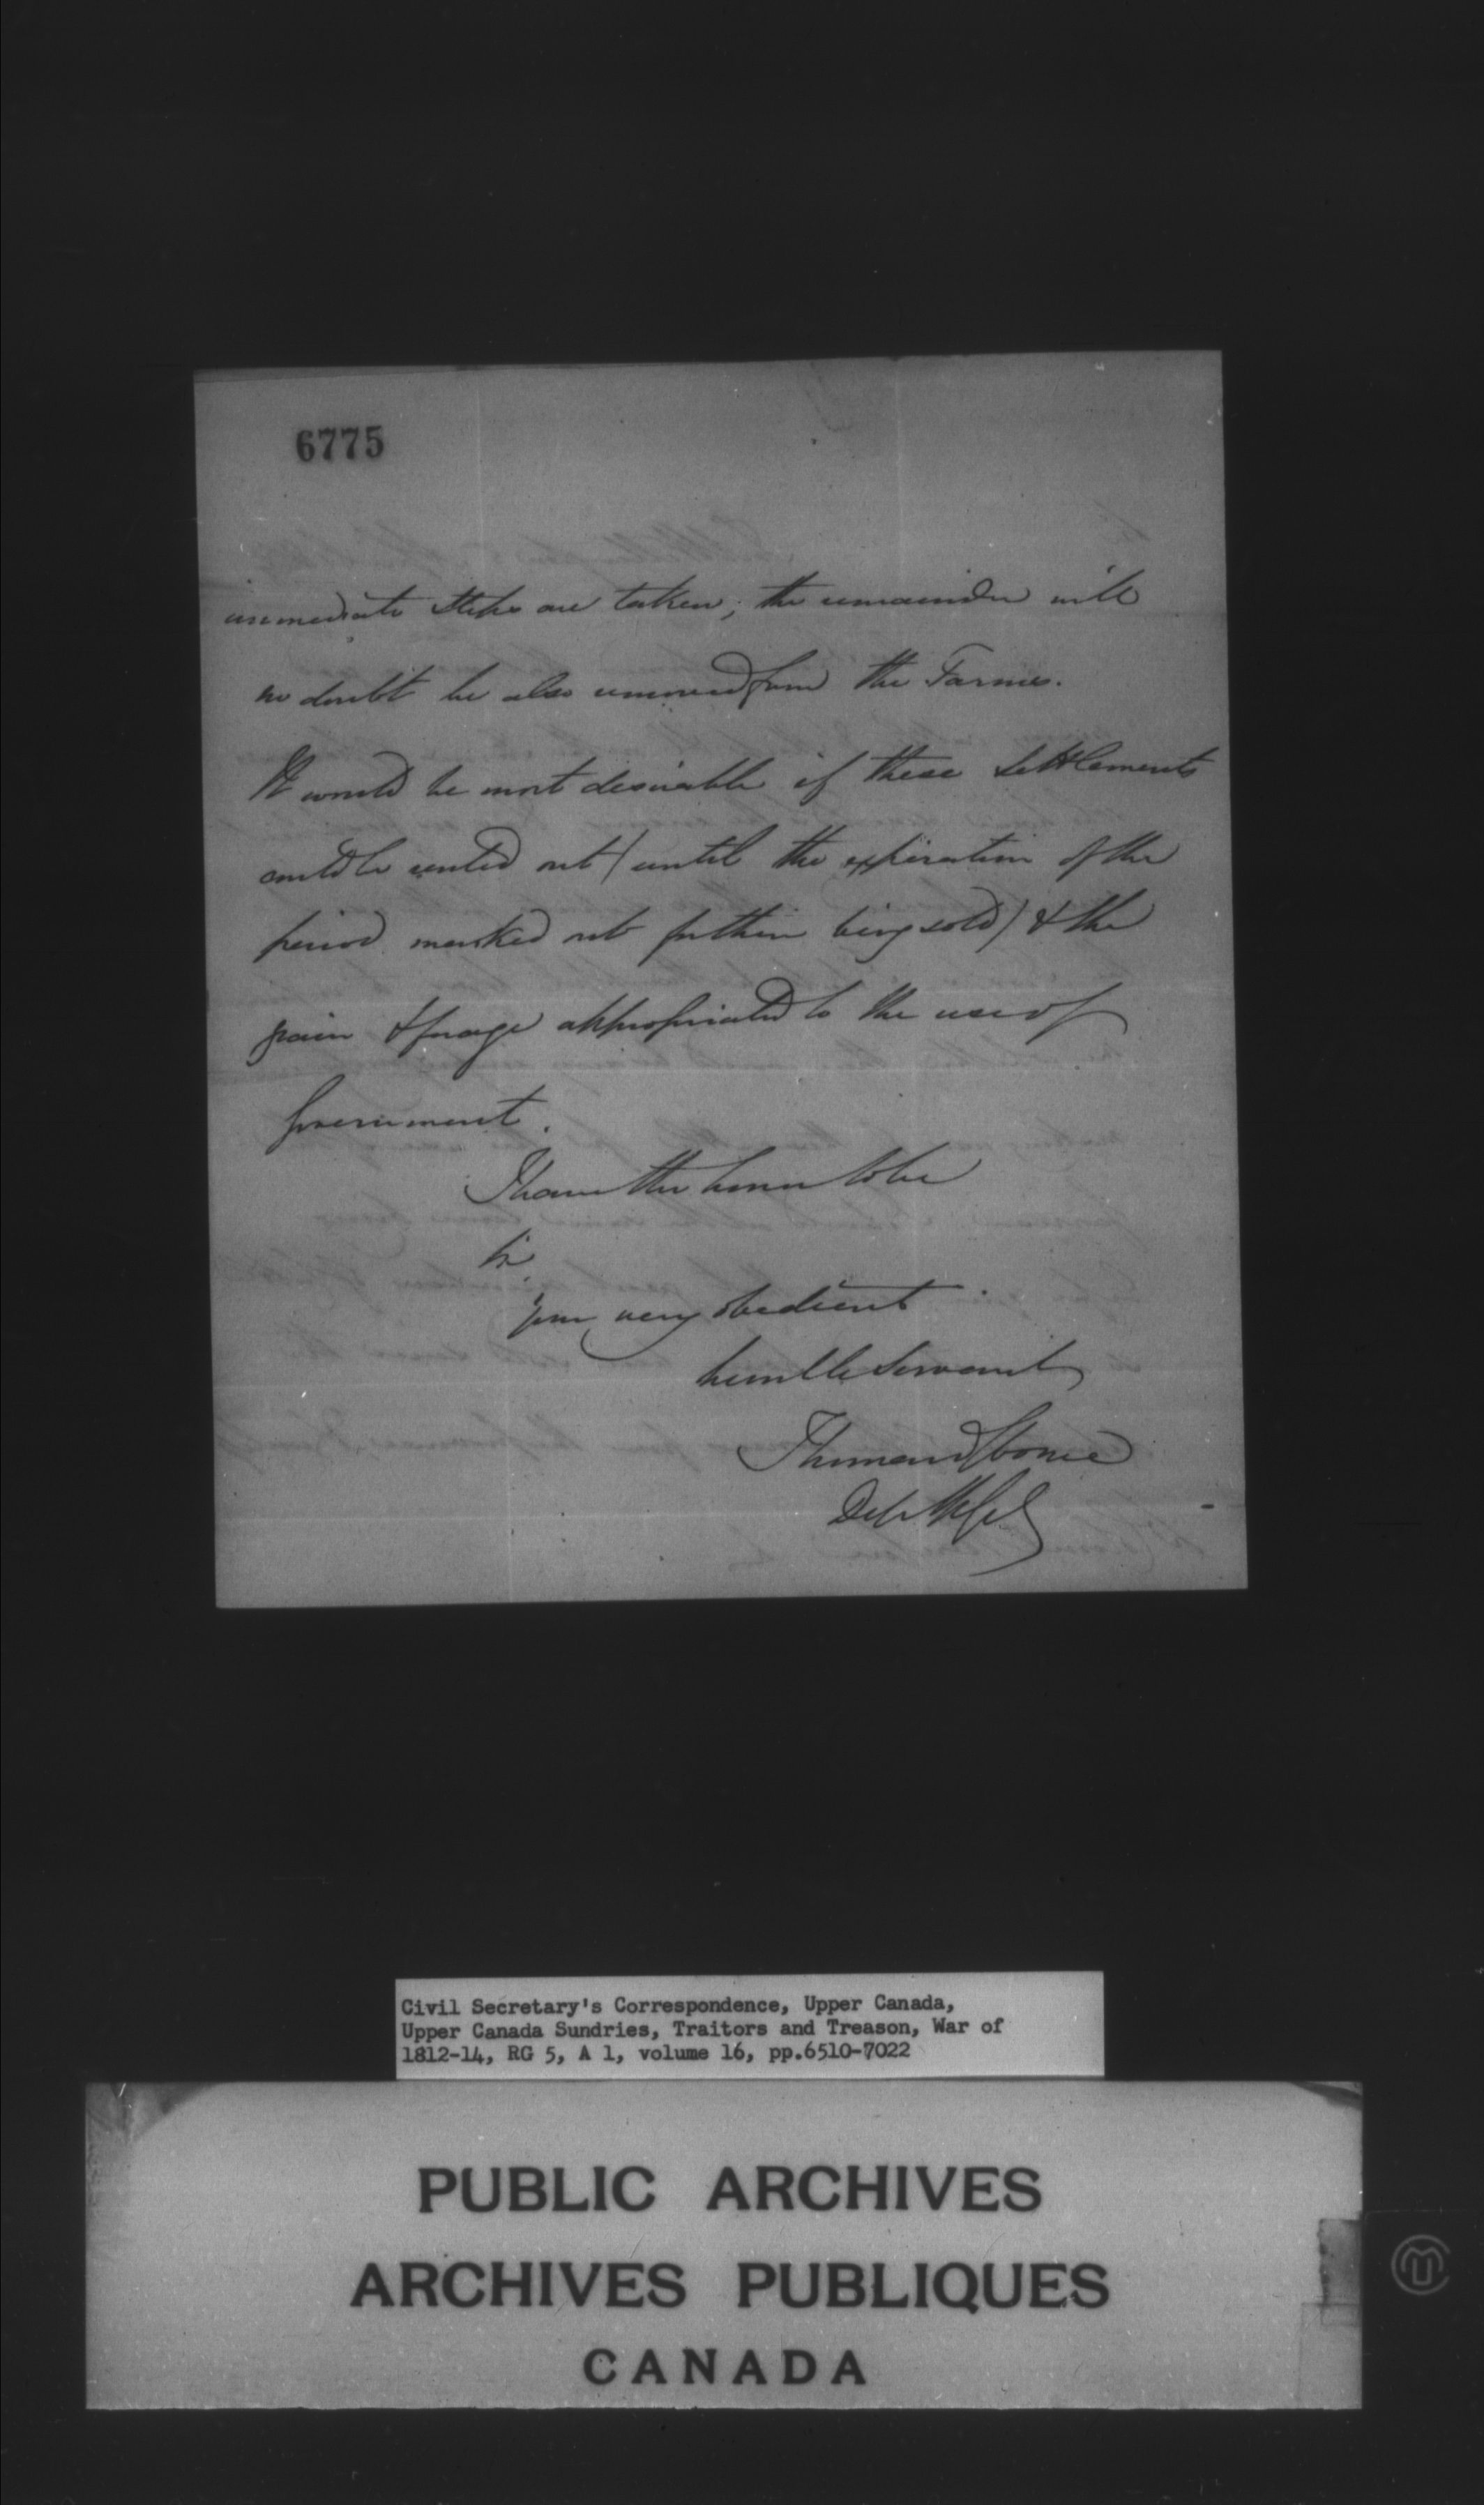 6775
immediate steps are taken; the remainder will
no doubt be also removed from the Farms.
It would be most desirable if these Settlements
could be rented out (until the expiration of the
period marked out for their being sold) & the
grain & forage appropriated to the use of
Government.
I have the honor to be
Sir,
your very obedient
humble Servant
Civil Secretary's Correspondence, Upper Canada,
Upper Canada Sundries, Traitors and Treason, War of
1812-14, RG 5, A 1, volume 16, pp.6510-7022
PUBLIC ARCHIVES
ARCHIVES PUBLIQUES
CANADA